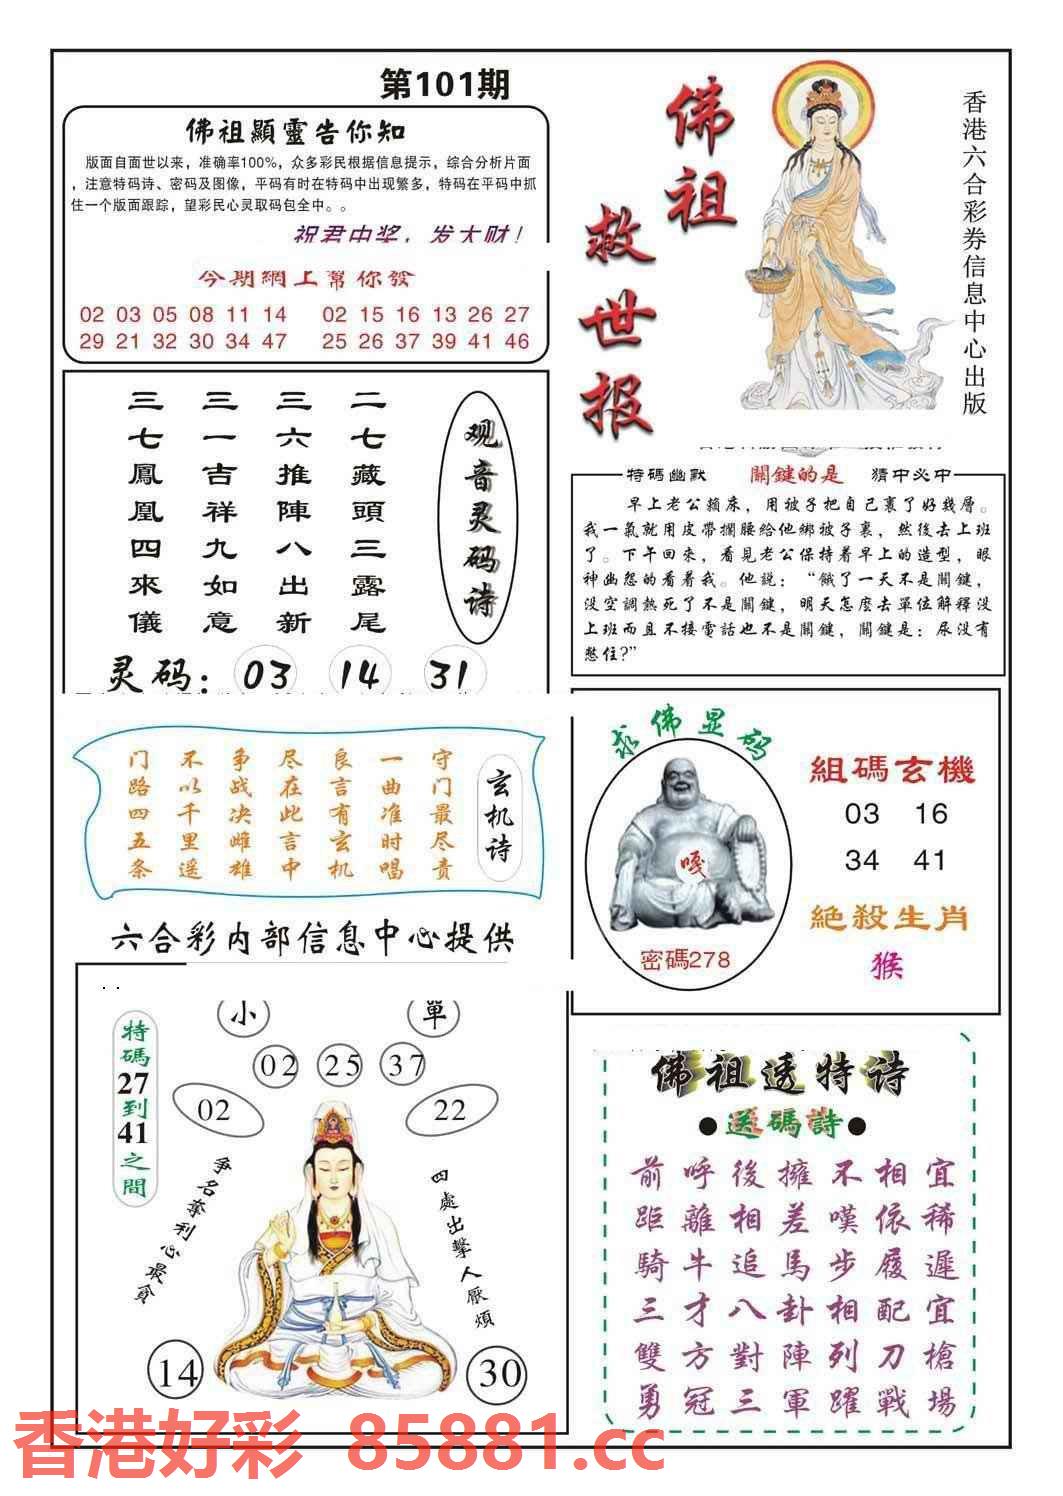 第101期
佛祖顯靈告你知
版面自面世以来，准确率100%，众多彩民根据信息提示，综合分析片面
，注意特码诗、密码及图像，平码有时在特码中出现繁多，特码在平码中抓
住一个版面跟踪，望彩民心灵取码包全中。。
祝君中奖，发大财！
今期網上幫你發
02 03 05 08 11 14 02 15 16 13 26 27
29 21 32 30 34 47 25 26 37 39 41 46
佛祖
救世报
香港六合彩券信息中心出版
观音灵码诗
二七藏頭三露尾
三六推陳八出新
三一吉祥九如意
三七鳳凰四來儀
灵码：03 14 31
特碼幽默 關鍵的是 猜中必中
早上老公賴床，用被子把自己裹了好幾層。
我一氣就用皮帶攔腰給他綁被子裏，然後去上班
了。下午回來，看見老公保持着早上的造型，眼
神幽怨的看着我。他説：“餓了一天不是關鍵，
没空調熱死了不是關鍵，明天怎麼去單位解釋没
上班而且不接電話也不是關鍵，關鍵是：尿没有
憋住？”
玄机诗
守门最尽责
一曲准时唱
良言有玄机
尽在此言中
争战决雌雄
不以千里遥
门路四五条
六合彩内部信息中心提供
求佛显码
嘎
密碼278
組碼玄機
03 16
34 41
絶殺生肖
猴
特碼27到41之間
小 單
02 25 37
02 22
争名奪利心最貪
四處出擊人厭煩
14 30
佛祖透特诗
●送碼詩●
前呼後擁不相宜
距離相差嘆依稀
騎牛追馬步履遲
三才八卦相配宜
雙方對陣列刀槍
勇冠三軍躍戰場
香港好彩 85881.cc